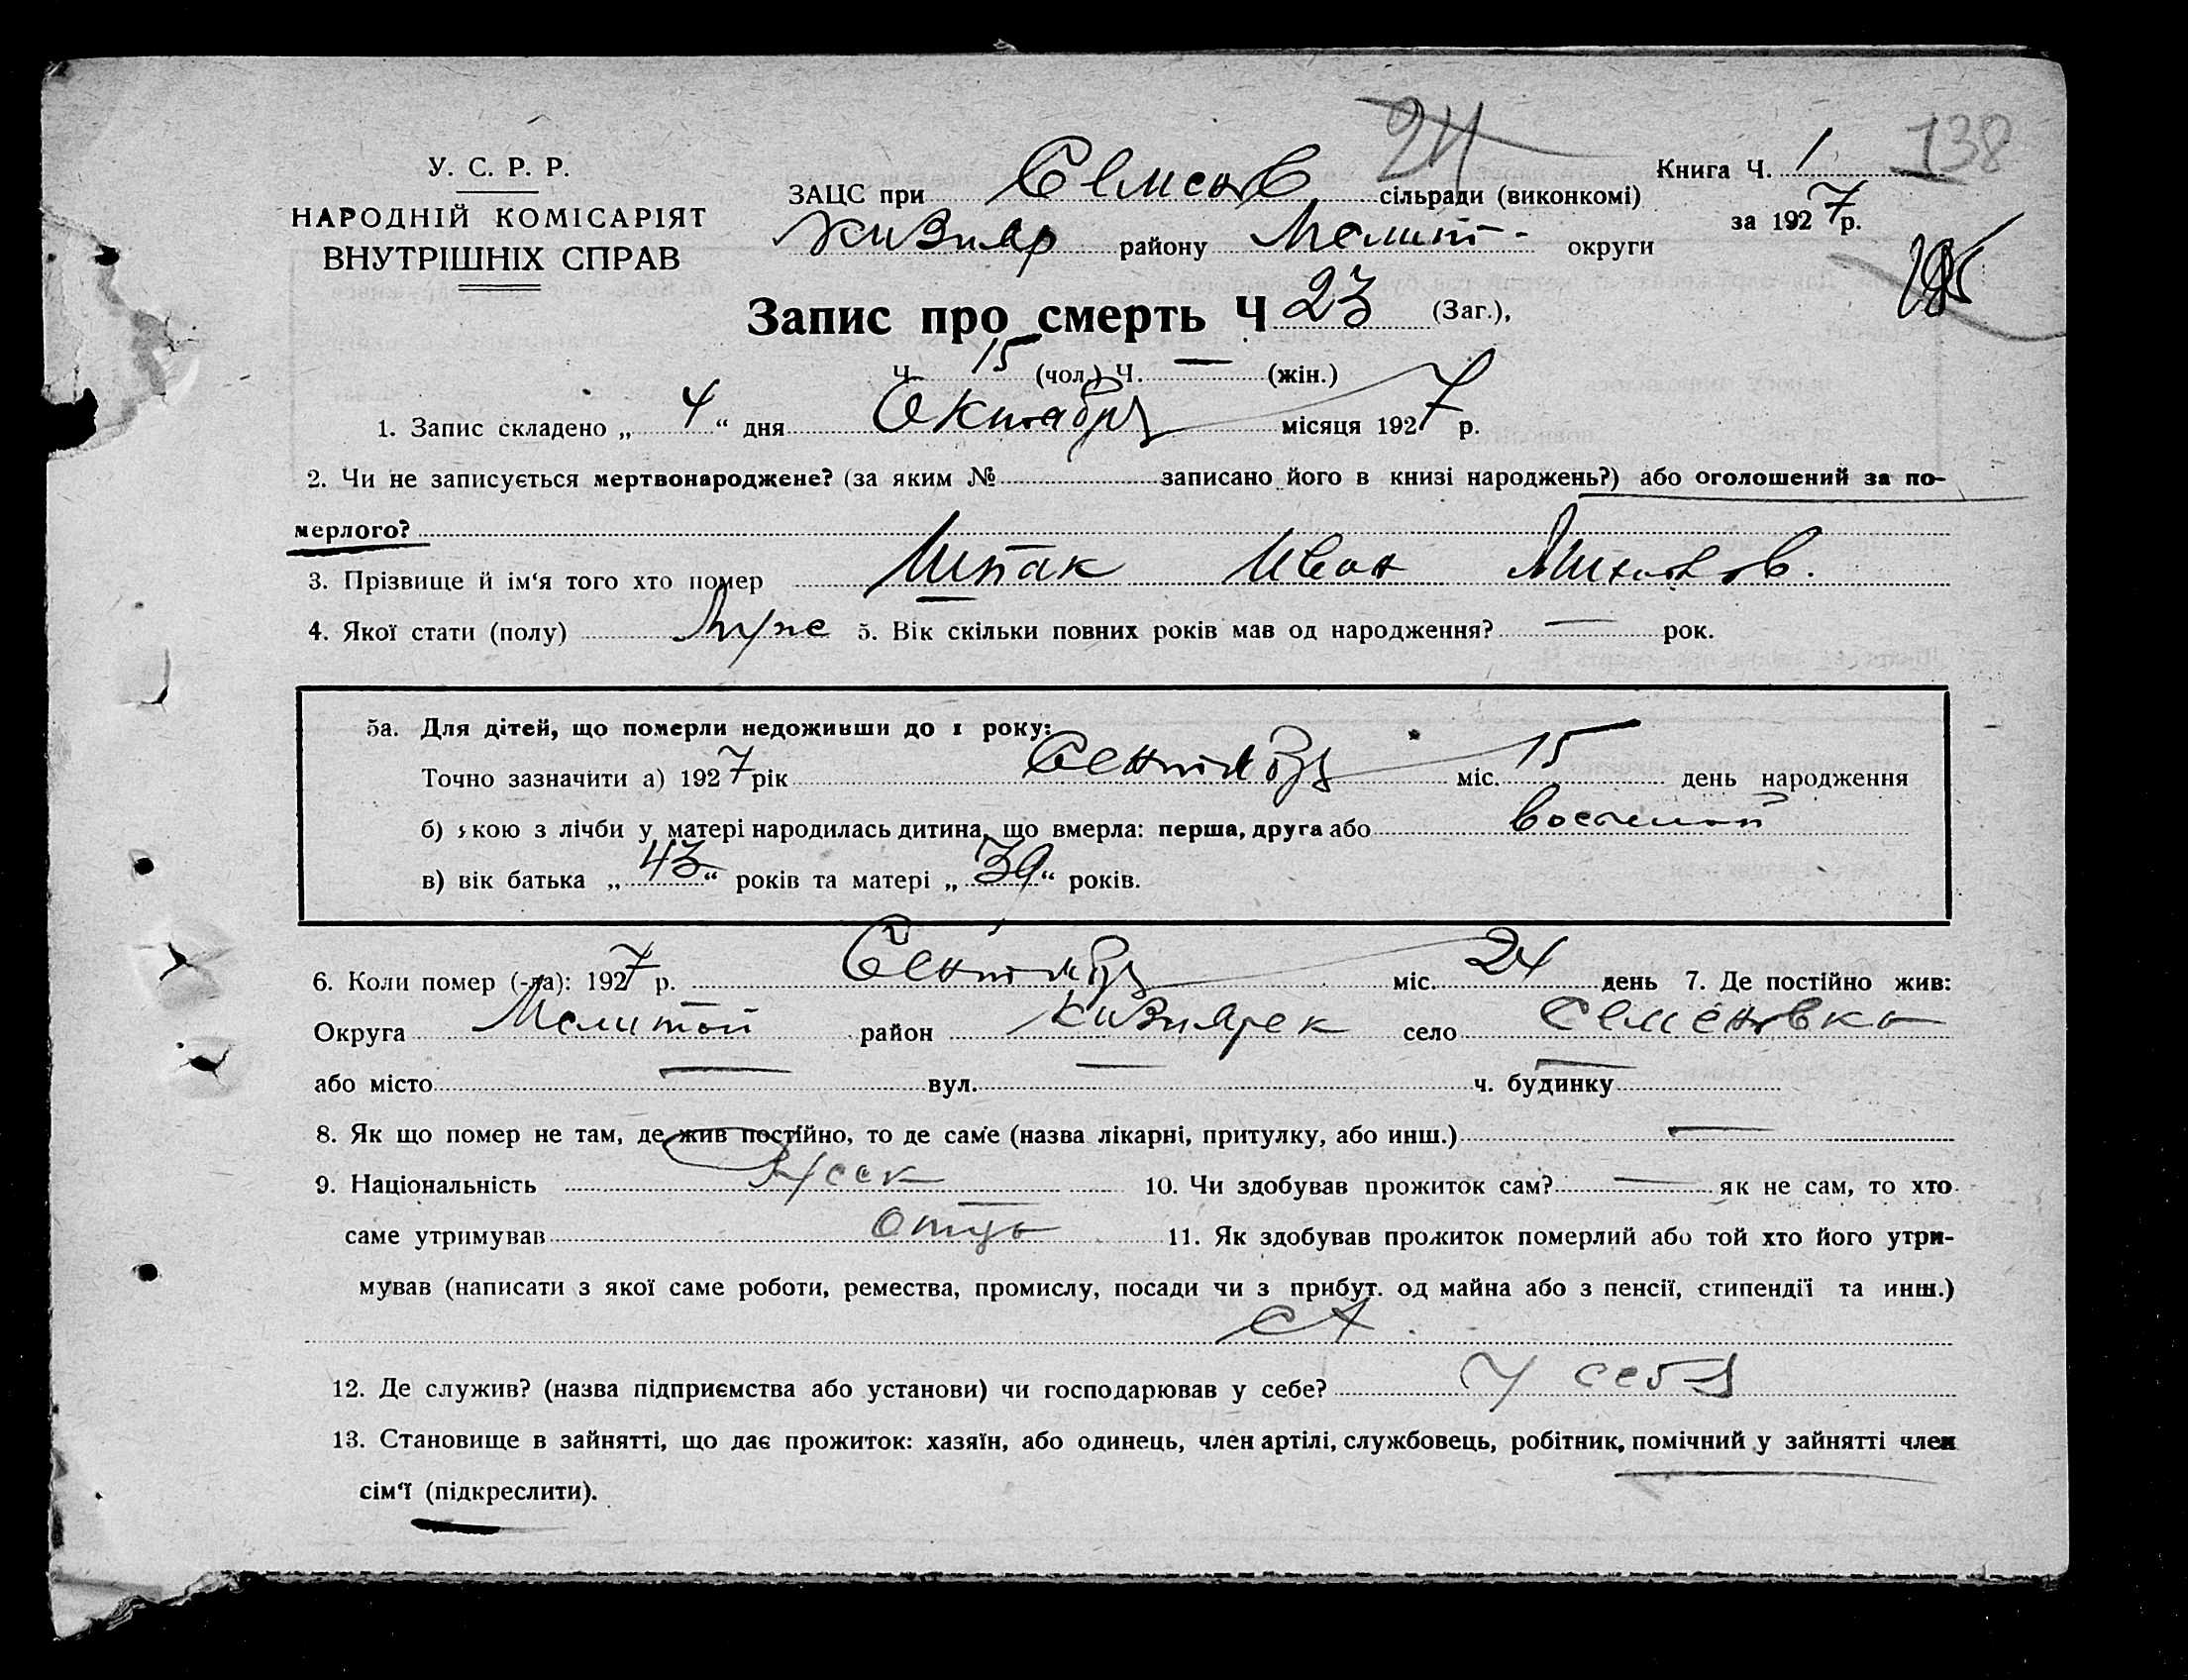 24
138
У. С. Р. Р.
НАРОДНІЙ КОМІСАРІЯТ
ВНУТРІШНІХ СПРАВ
ЗАЦС при Семенов сільради (виконкомі)
Книга Ч. 1
за 1927 р.
Кизияр району Мелит- округи
Запис про смерть Ч 23 (Заг.),
Ч. 15 (чол.) Ч. — (жін.)
1. Запис складено „ 4 “ дня Октября місяця 1927 р.
2. Чи не записується мертвонароджене? (за яким № записано його в книзі народжень?) або оголошений за по-
мерлого?
3. Прізвище й ім‘я того хто помер Шпак Иван Михайлов.
4. Якої стати (полу) Муже 5. Вік скільки повних років мав од народження? — рок.
5а. Для дітей, що померли недоживши до 1 року:
Точно зазначити а) 1927 рік Сентября міс. 15 день народження
б) якою з лічби у матері народилась дитина, що вмерла: перша, друга або восьмой
в) вік батька „ 43 “ років та матері „ 39 “ років.
6. Коли помер (-ла): 1927 р. Сентября міс. 24 день 7. Де постійно жив:
Округа Мелитой район Кизиярск село Семеновка
або місто — вул. — ч. будинку —
8. Як що помер не там, де жив постійно, то де саме (назва лікарні, притулку, або инш.) —
9. Національність Русск 10. Чи здобував прожиток сам? — як не сам, то хто
саме утримував отць 11. Як здобував прожиток померлий або той хто його утри-
мував (написати з якої саме роботи, ремества, промислу, посади чи з прибут. од майна або з пенсії, стипендії та инш.)
СХ.
12. Де служив? (назва підприємства або установи) чи господарював у себе? у себя
13. Становище в зайнятті, що дає прожиток: хазяїн, або одинець, член артілі, службовець, робітник, помічний у зайнятті член
сім‘ї (підкреслити).